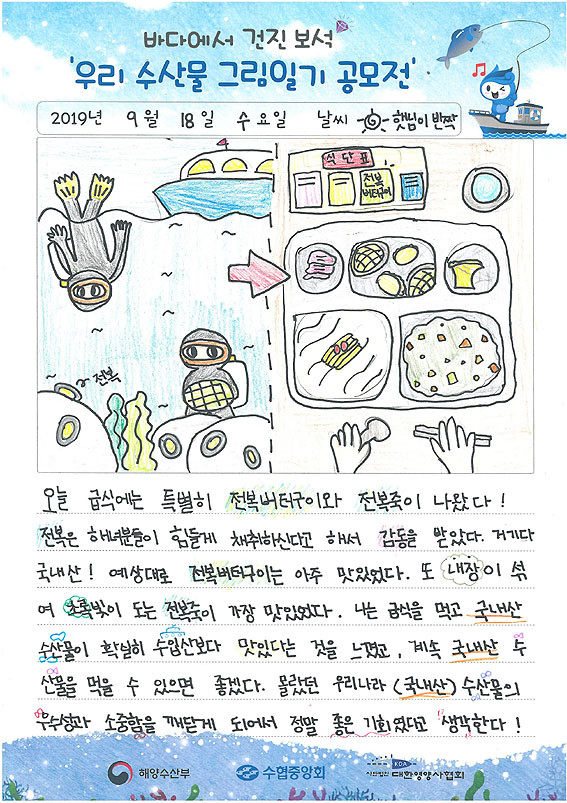 바다에서 건진 보석
'우리 수산물 그림일기 공모전'
2019년 9월 18일 수요일 날씨 햇님이 반짝
식단표
전복버터구이
전복
오늘 급식에는 특별히 전복버터구이와 전복죽이 나왔다!
전복은 해녀분들이 힘들게 채취하신다고 해서 감동을 받았다. 거기다
국내산! 예상대로 전복버터구이는 아주 맛있었다. 또 내장이 섞
여 초록빛이 도는 전복죽이 가장 맛있었다. 나는 급식을 먹고 국내산
수산물이 확실히 수입산보다 맛있다는 것을 느꼈고, 계속 국내산 수
산물을 먹을 수 있으면 좋겠다. 몰랐던 우리나라(국내산) 수산물의
우수성과 소중함을 깨닫게 되어서 정말 좋은 기회였다고 생각한다!
해양수산부 수협중앙회 KDA 사단법인 대한영양사협회